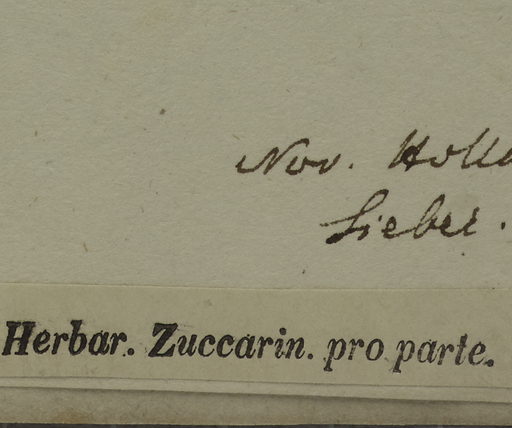 Nov. Holla
Sieber.
Herbar. Zuccarin. pro parte.